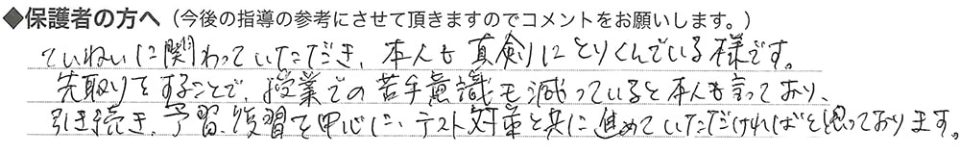 ◆保護者の方へ（今後の指導の参考にさせて頂きますのでコメントをお願いします。）
ていねいに関わっていただき、本人も真剣にとりくんでいる様です。
先取りをすることで、授業での苦手意識も減っていると本人も言っており、
引き続き、予習、復習を中心に、テスト対策と共に進めていただければと思っております。